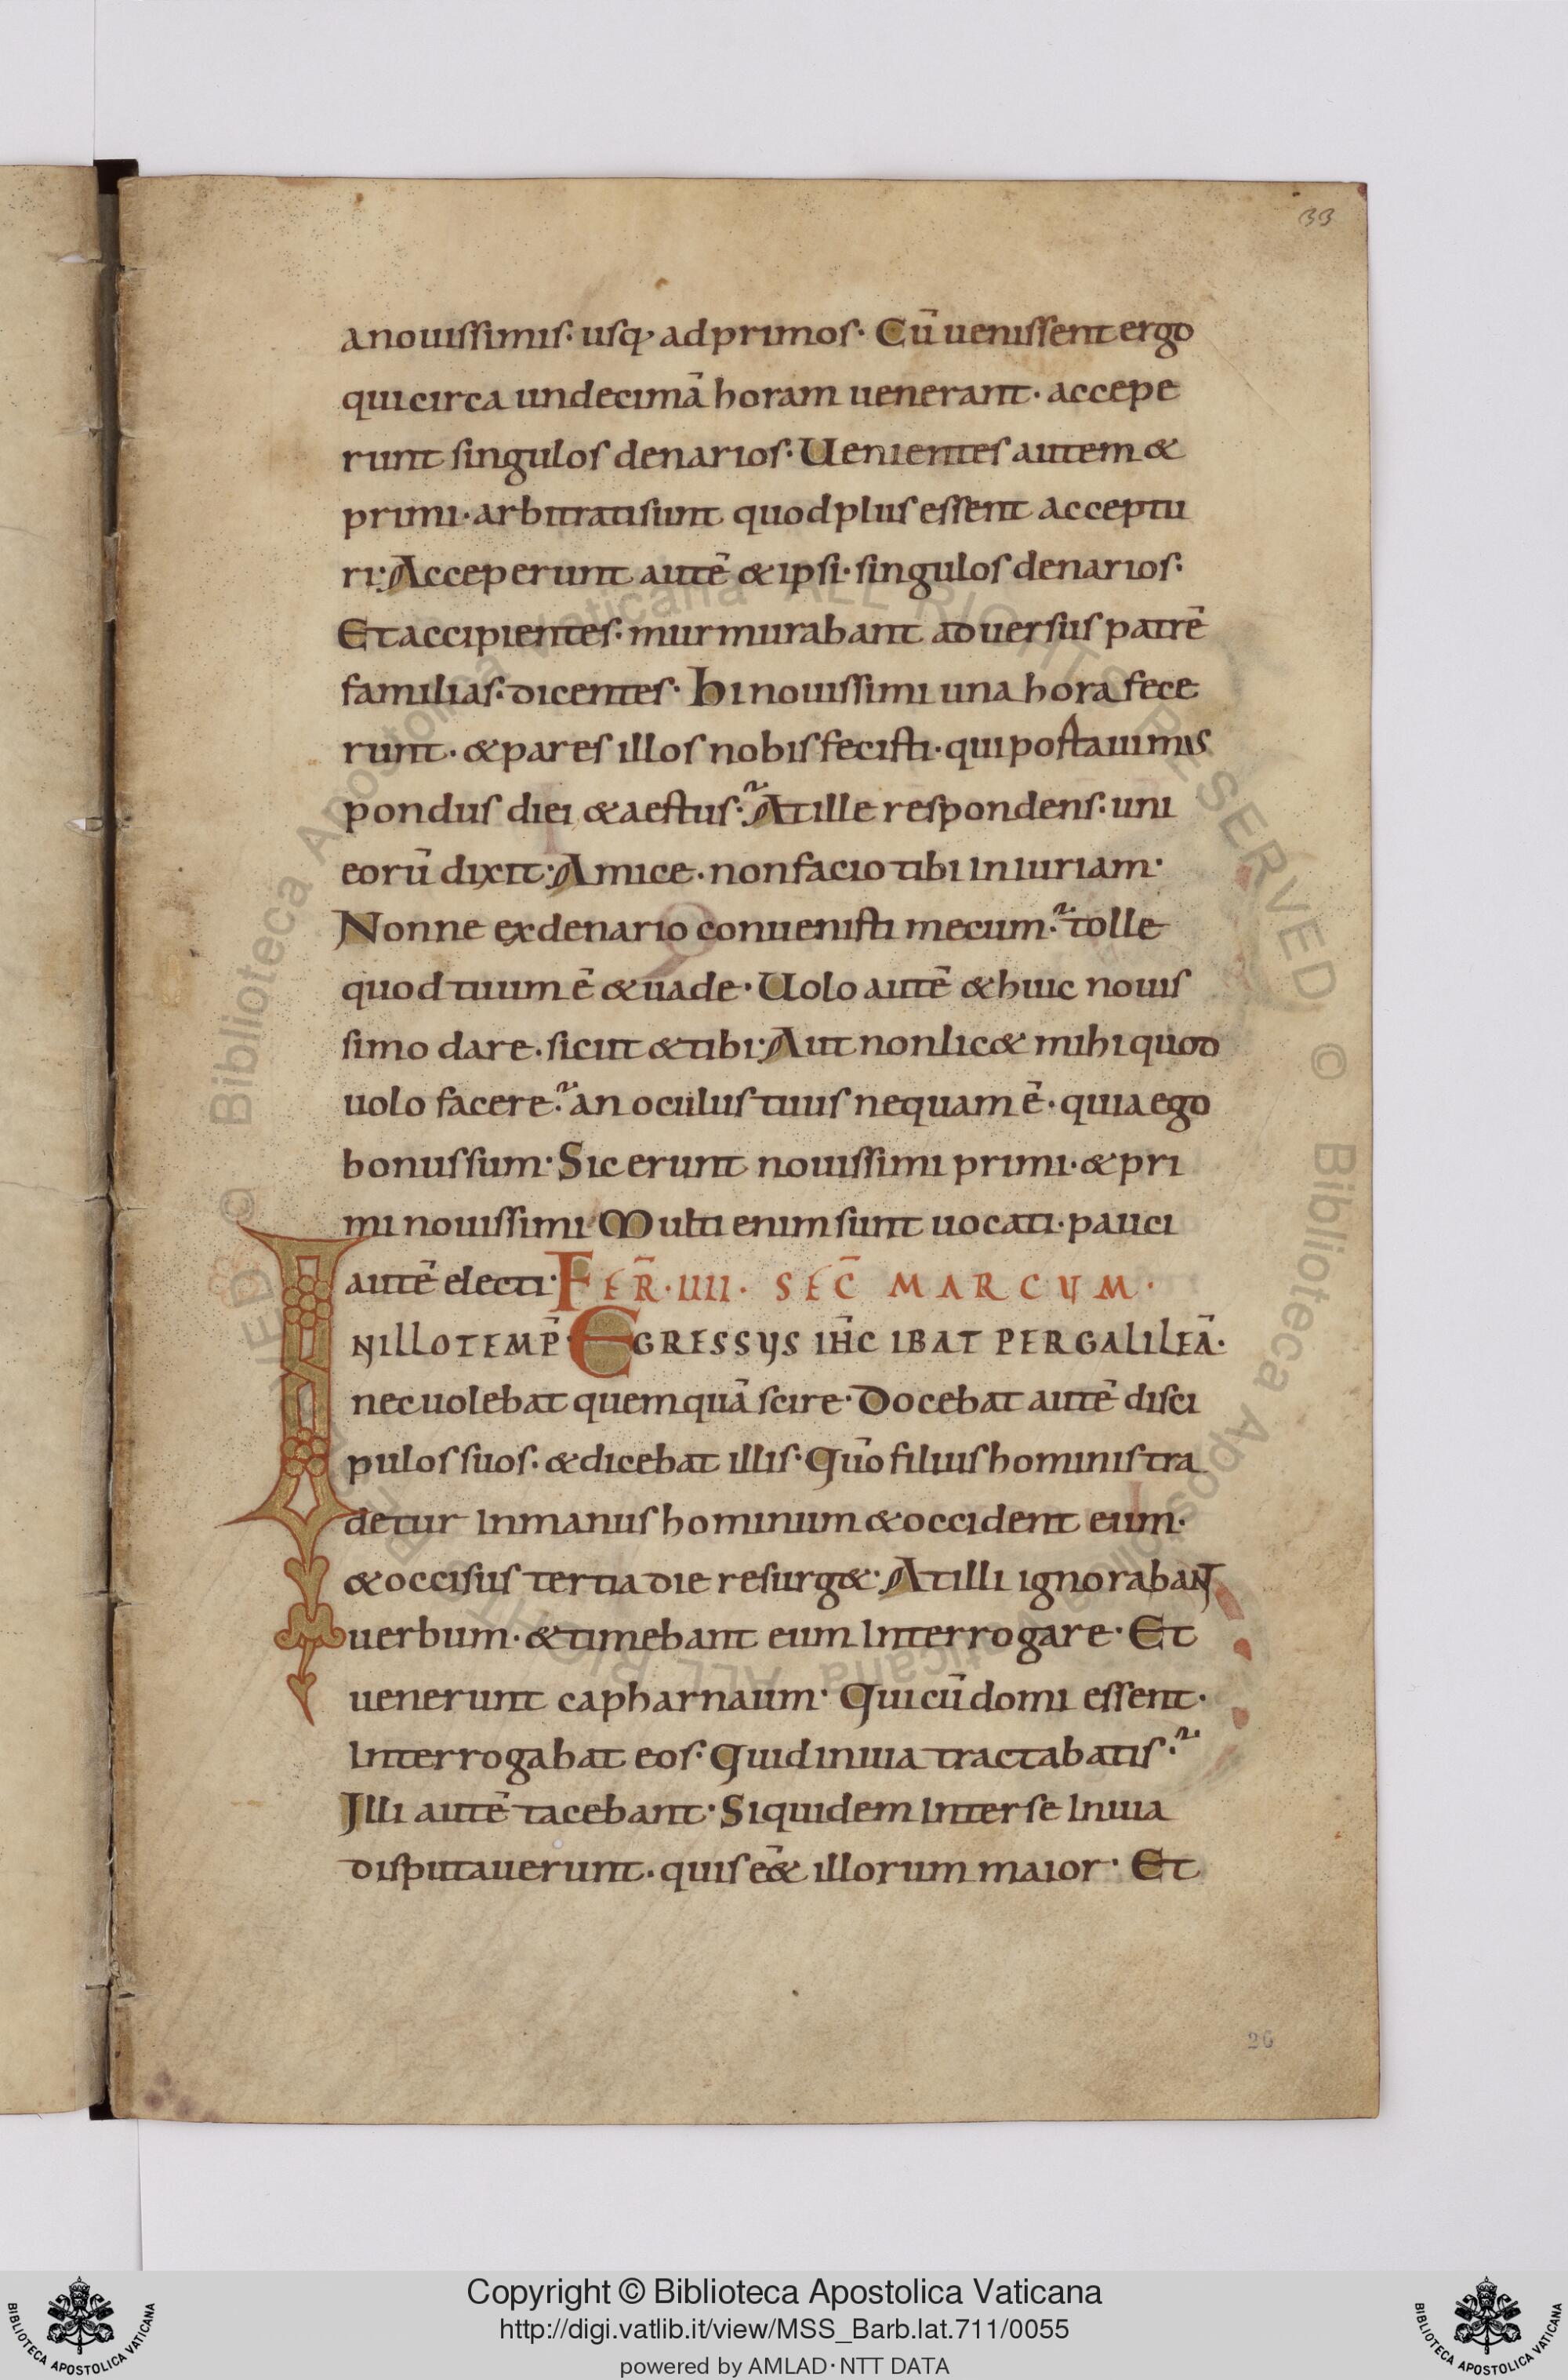 33
anouissimis· usq· adprimos· Cū uenissent ergo
quicirca undecimā horam uenerant· accepe
runt singulos denarios· Uenientes autem &
primi· arbitratisunt quodplus essent acceptu
ri· Acceperunt autē & ipsi· singulos denarios·
Et accipientes· murmurabant aduersus patrē
familias· dicentes· hi nouissimi una hora fece
runt· & pares illos nobis fecisti· qui portauimus
pondus diei & aestus? At ille respondens· uni
eorū dixit· Amice· non facio tibi iniuriam·
Nonne ex denario conuenisti mecum? tolle
quod tuum ē & uade· Uolo autē & huic nouis
simo dare· sicut & tibi· Aut non lic& mihi quod
uolo facere? an oculus tuus nequam ē· quia ego
bonus sum· Sic erunt nouissimi primi· & pri
mi nouissimi· Multi enim sunt uocati· pauci
autē electi· FER̄· IIII· SEC̄ MARCUM·
IN ILLO TEMP̄· EGRESSUS IH̄C IBAT PER GALILEĀ·
nec uolebat quemquā scire· Docebat autē disci
pulos suos· & dicebat illis· Quō filius hominis tra
detur in manus hominum & occident eum·
& occisus tertia die resurg&· At illi ignorabant
uerbum· & timebant eum interrogare· Et
uenerunt capharnaum· Qui cū domi essent·
Interrogabat eos· Quid in uia tractabatis?
Illi autē tacebant· Siquidem inter se in uia
disputauerunt· quis eē& illorum maior· Et
26
© Biblioteca Apostolica Vaticana ALL RIGHTS RESERVED © Biblioteca Apostolica Vaticana ALL RIGHTS RESERVED
Copyright © Biblioteca Apostolica Vaticana
http://digi.vatlib.it/view/MSS_Barb.lat.711/0055
powered by AMLAD·NTT DATA
BIBLIOTECA APOSTOLICA VATICANA
BIBLIOTECA APOSTOLICA VATICANA